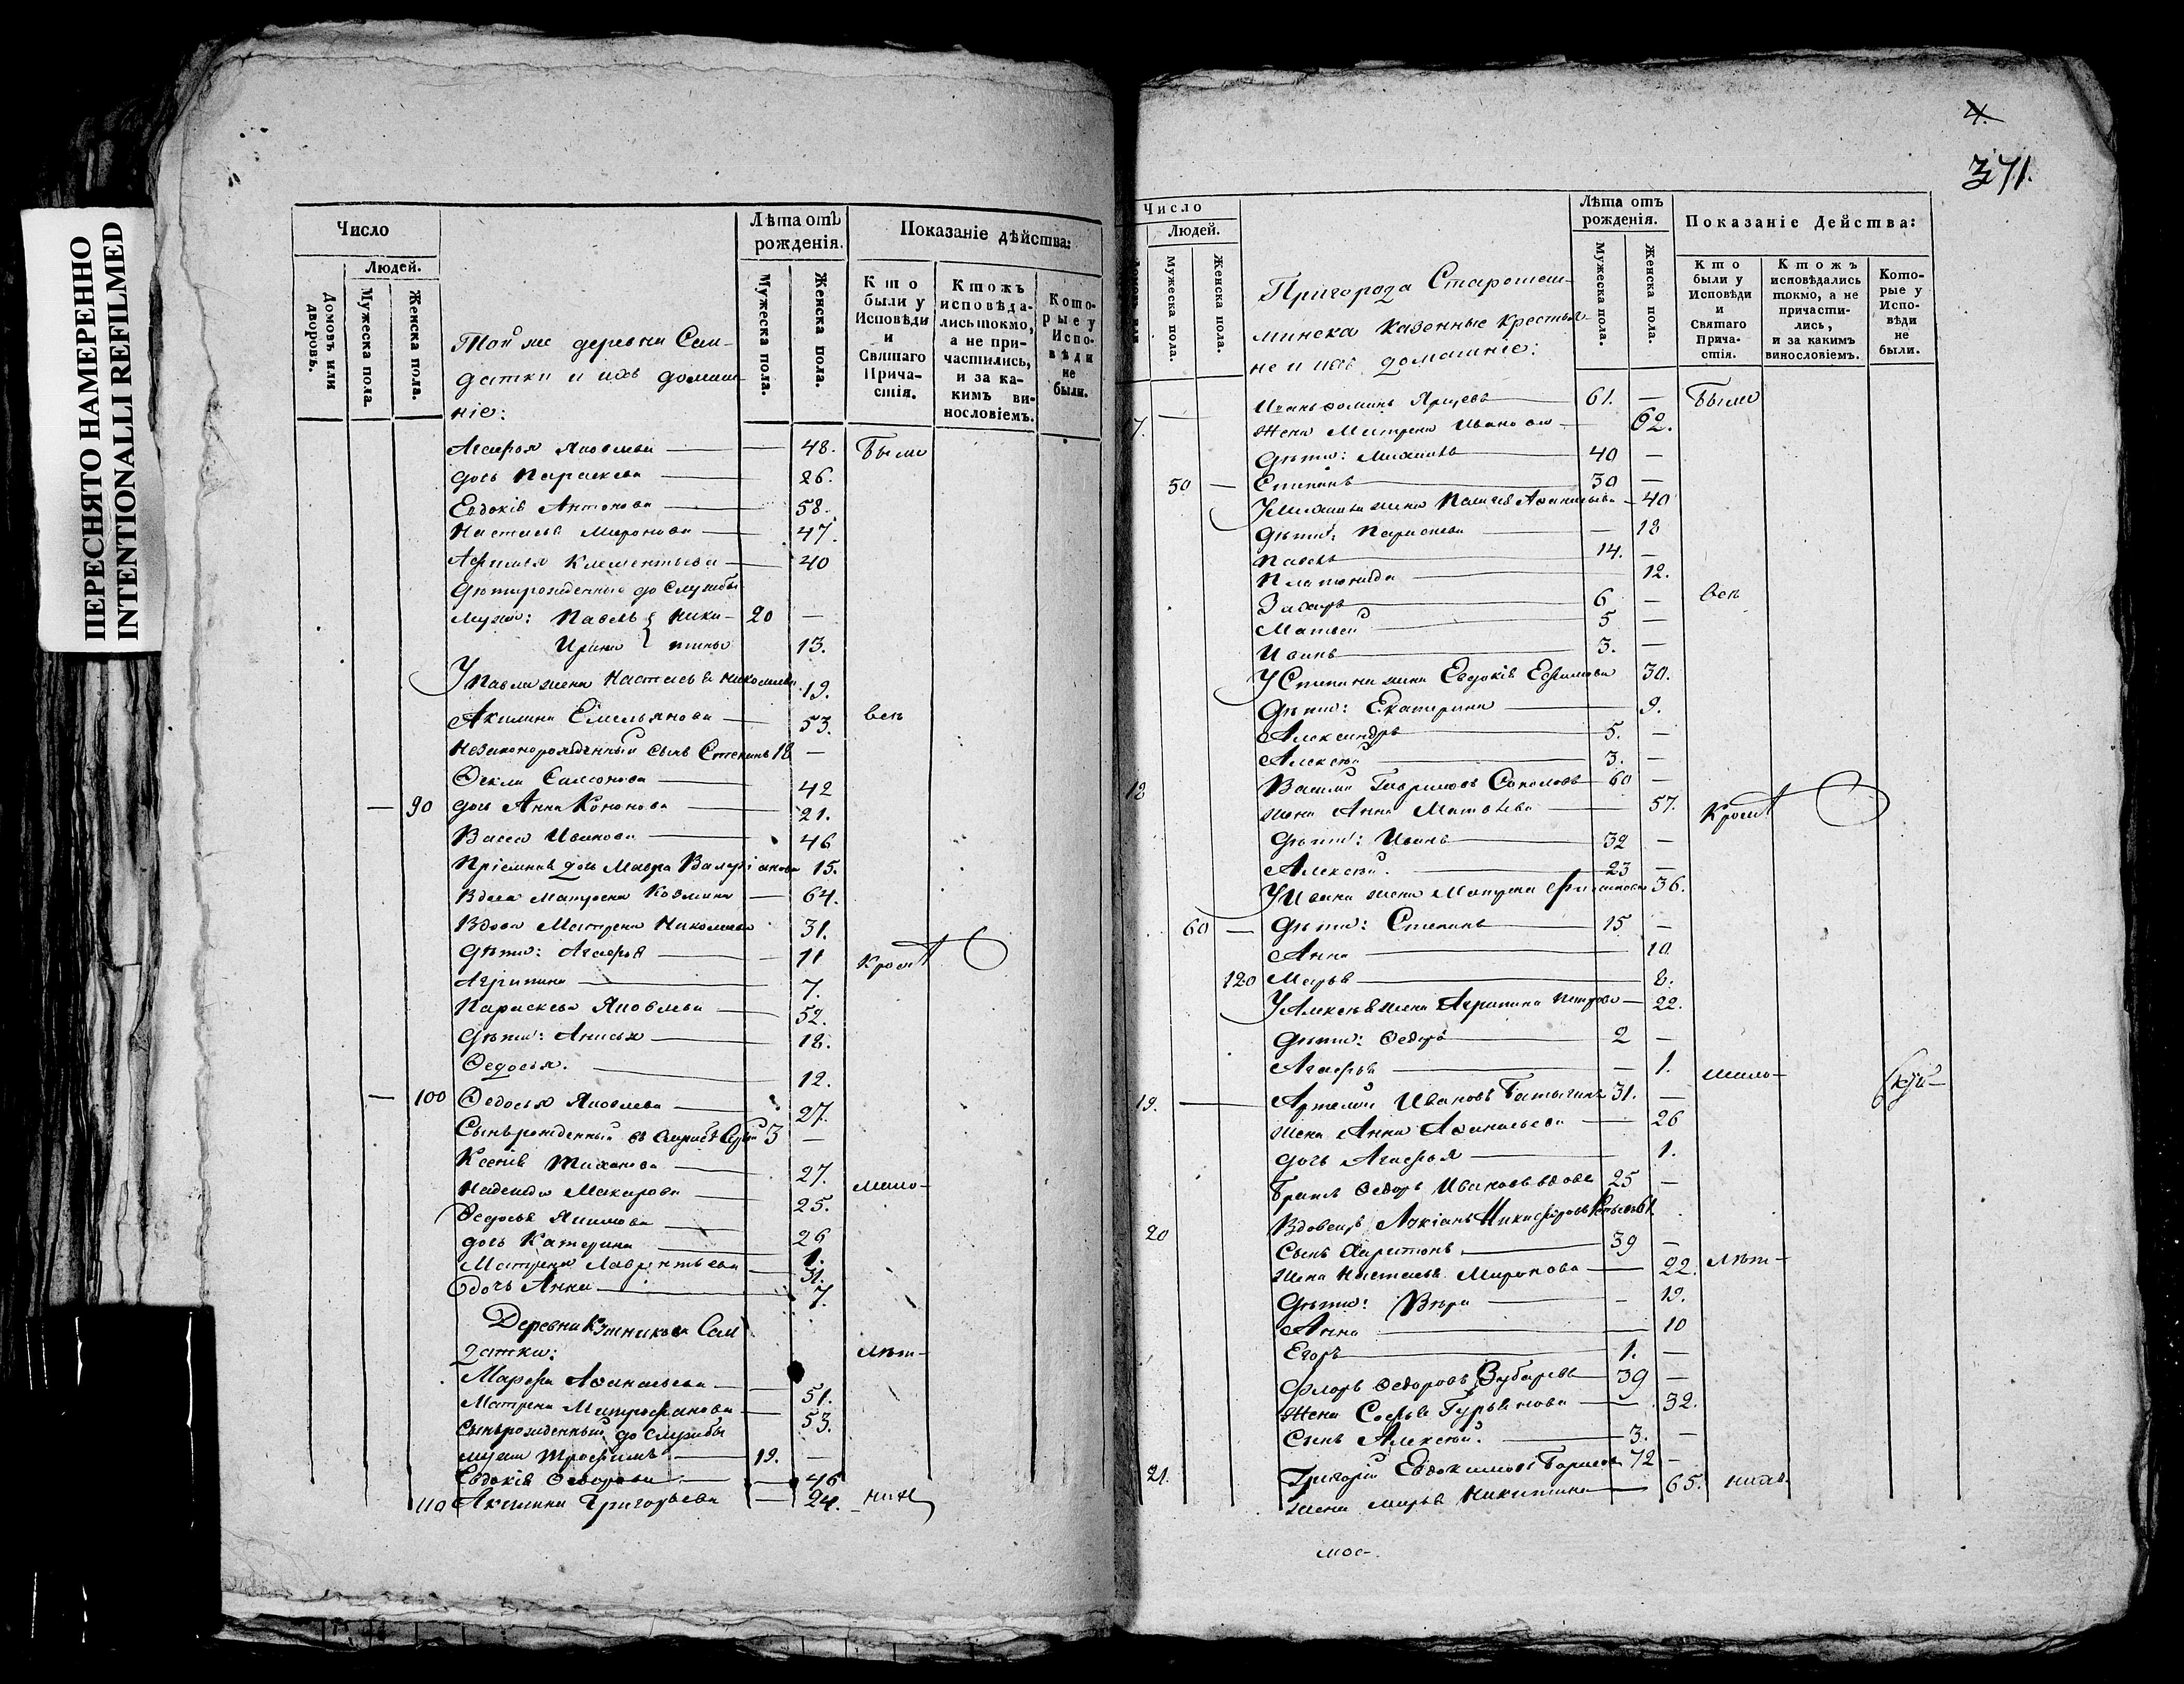 ПЕРЕСНЯТО НАМЕРЕННО
INTENTIONALLI REFILMED
Число
Людей.
Домовъ или дворовъ.
Мужеска пола.
Женска пола.
Той же деревни Сол-
датки и ихъ домаш-
ніе:
Лѣта отъ рожденія.
Мужеска пола.
Женска пола.
Показаніе дѣйства:
Кто были у Исповѣди и Святаго Прича-стія.
Ктожъ исповѣда-лись токмо, а не при-частились, и за ка-кимъ ви-нословіемъ.
Кото-рые у Испо-вѣди не были.
Агафья Яковлева — 48. Были
дочь Параскева 26.
Евдокія Антонова 58.
Настасья Миронова 47.
Афимья Клементьева 40
Дѣти рожденные до службы
мужа: Павелъ } Ники- 20 —
Ирина } тины 13.
У Павла жена Настасья Николаева 19.
Акилина Емельянова 53. всѣ
Незаконорожденный сынъ Степанъ 18 —
Ѳекла Самсонова 42
— 90 дочь Анна Кононова 21.
Васса Иванова 46
Пріемная дочь Мавра Валеріанова 15.
Вдова Матрена Козмина — 64.
Вдова Матрена Николаева 31.
Дѣти: Агафья 11 кромѣ
Агрипина 7.
Параскева Яковлева 52.
Дѣти: Анисья 18.
Ѳедосья. 12.
— 100 Ѳедосья Яковлева 27.
Сынъ рожденный 3 —
Ксенія Тиханова 27.
Надежда Макарова 25. мало-
Ѳедосья Якимова 26
дочь Катерина 1.
Матрена Лаврентьева 31.
дочь Анна 7.
Деревни Сол
датки: лѣт-
Марфа Аѳанасьева 51.
Матрена Митрофанова 53.
Сынъ рожденный до службы
мужа Трофимъ 19. —
Евдокія Ѳедорова — 46
110 Акилина Григорьева — 24. нихъ
4.
371.
Число
Людей.
Мужеска пола.
Женска пола.
Пригорода Старошеш-
минска казенные крестья-
не и ихъ домашніе:
Лѣта отъ рожденія.
Мужеска пола.
Женска пола.
Показаніе Действа:
Кто были у Исповѣди и Святаго Прича-стія.
Ктожъ исповѣдались токмо, а не причасти-лись, и за какимъ винословіемъ.
Кото-рые у Испо-вѣди не были.
Иванъ Ѳоминъ 61. — Были
7. жена Матрена Иванова — 62.
Дѣти: Михаилъ 40 —
50 — Степанъ 30 —
У Михаила жена Аѳанасьева — 40
Дѣти: — 18
Павелъ 14. —
Платонида 12.
Захаръ 6 — всѣ
Матвей 5 —
Иванъ 3. —
У Степана жена Евдокія Ефимова 30.
Дѣти: Екатерина 9.
Александръ 5. —
Алексѣй 3. —
18 Василій Гавриловъ Соколовъ 60 —
жена Анна Матвѣева 57. кромѣ
Дѣти: Иванъ 32 —
Алексѣй. 23 —
У Ивана жена 36.
60 — Дѣти: Степанъ 15 —
Анна 10
120 Марья 8.
У Алексѣя жена Агрипина Петрова — 22.
Дѣти: Ѳедоръ 2 —
Агафья — 1. мало-
19. — Артемій Ивановъ 31. —
жена Анна Аѳанасьева — 26
дочь Агафья 1.
Братъ Ѳедоръ Ивановъ вдовъ 25 —
20 Вдовецъ Лукіанъ Никифоровъ 61
Сынъ Харитонъ 39 —
жена Настасья Миронова — 22. лѣт-
Дѣти: Вѣра — 19.
Анна — 10
Егоръ 1. —
Флоръ Ѳедоровъ Зубаревъ 39 —
Жена Софья Гурьянова — 32.
Сынъ Алексѣй. 3. —
21. Григорій Евдокимовъ 72 —
жена Марья Никитина — 65. нихъ